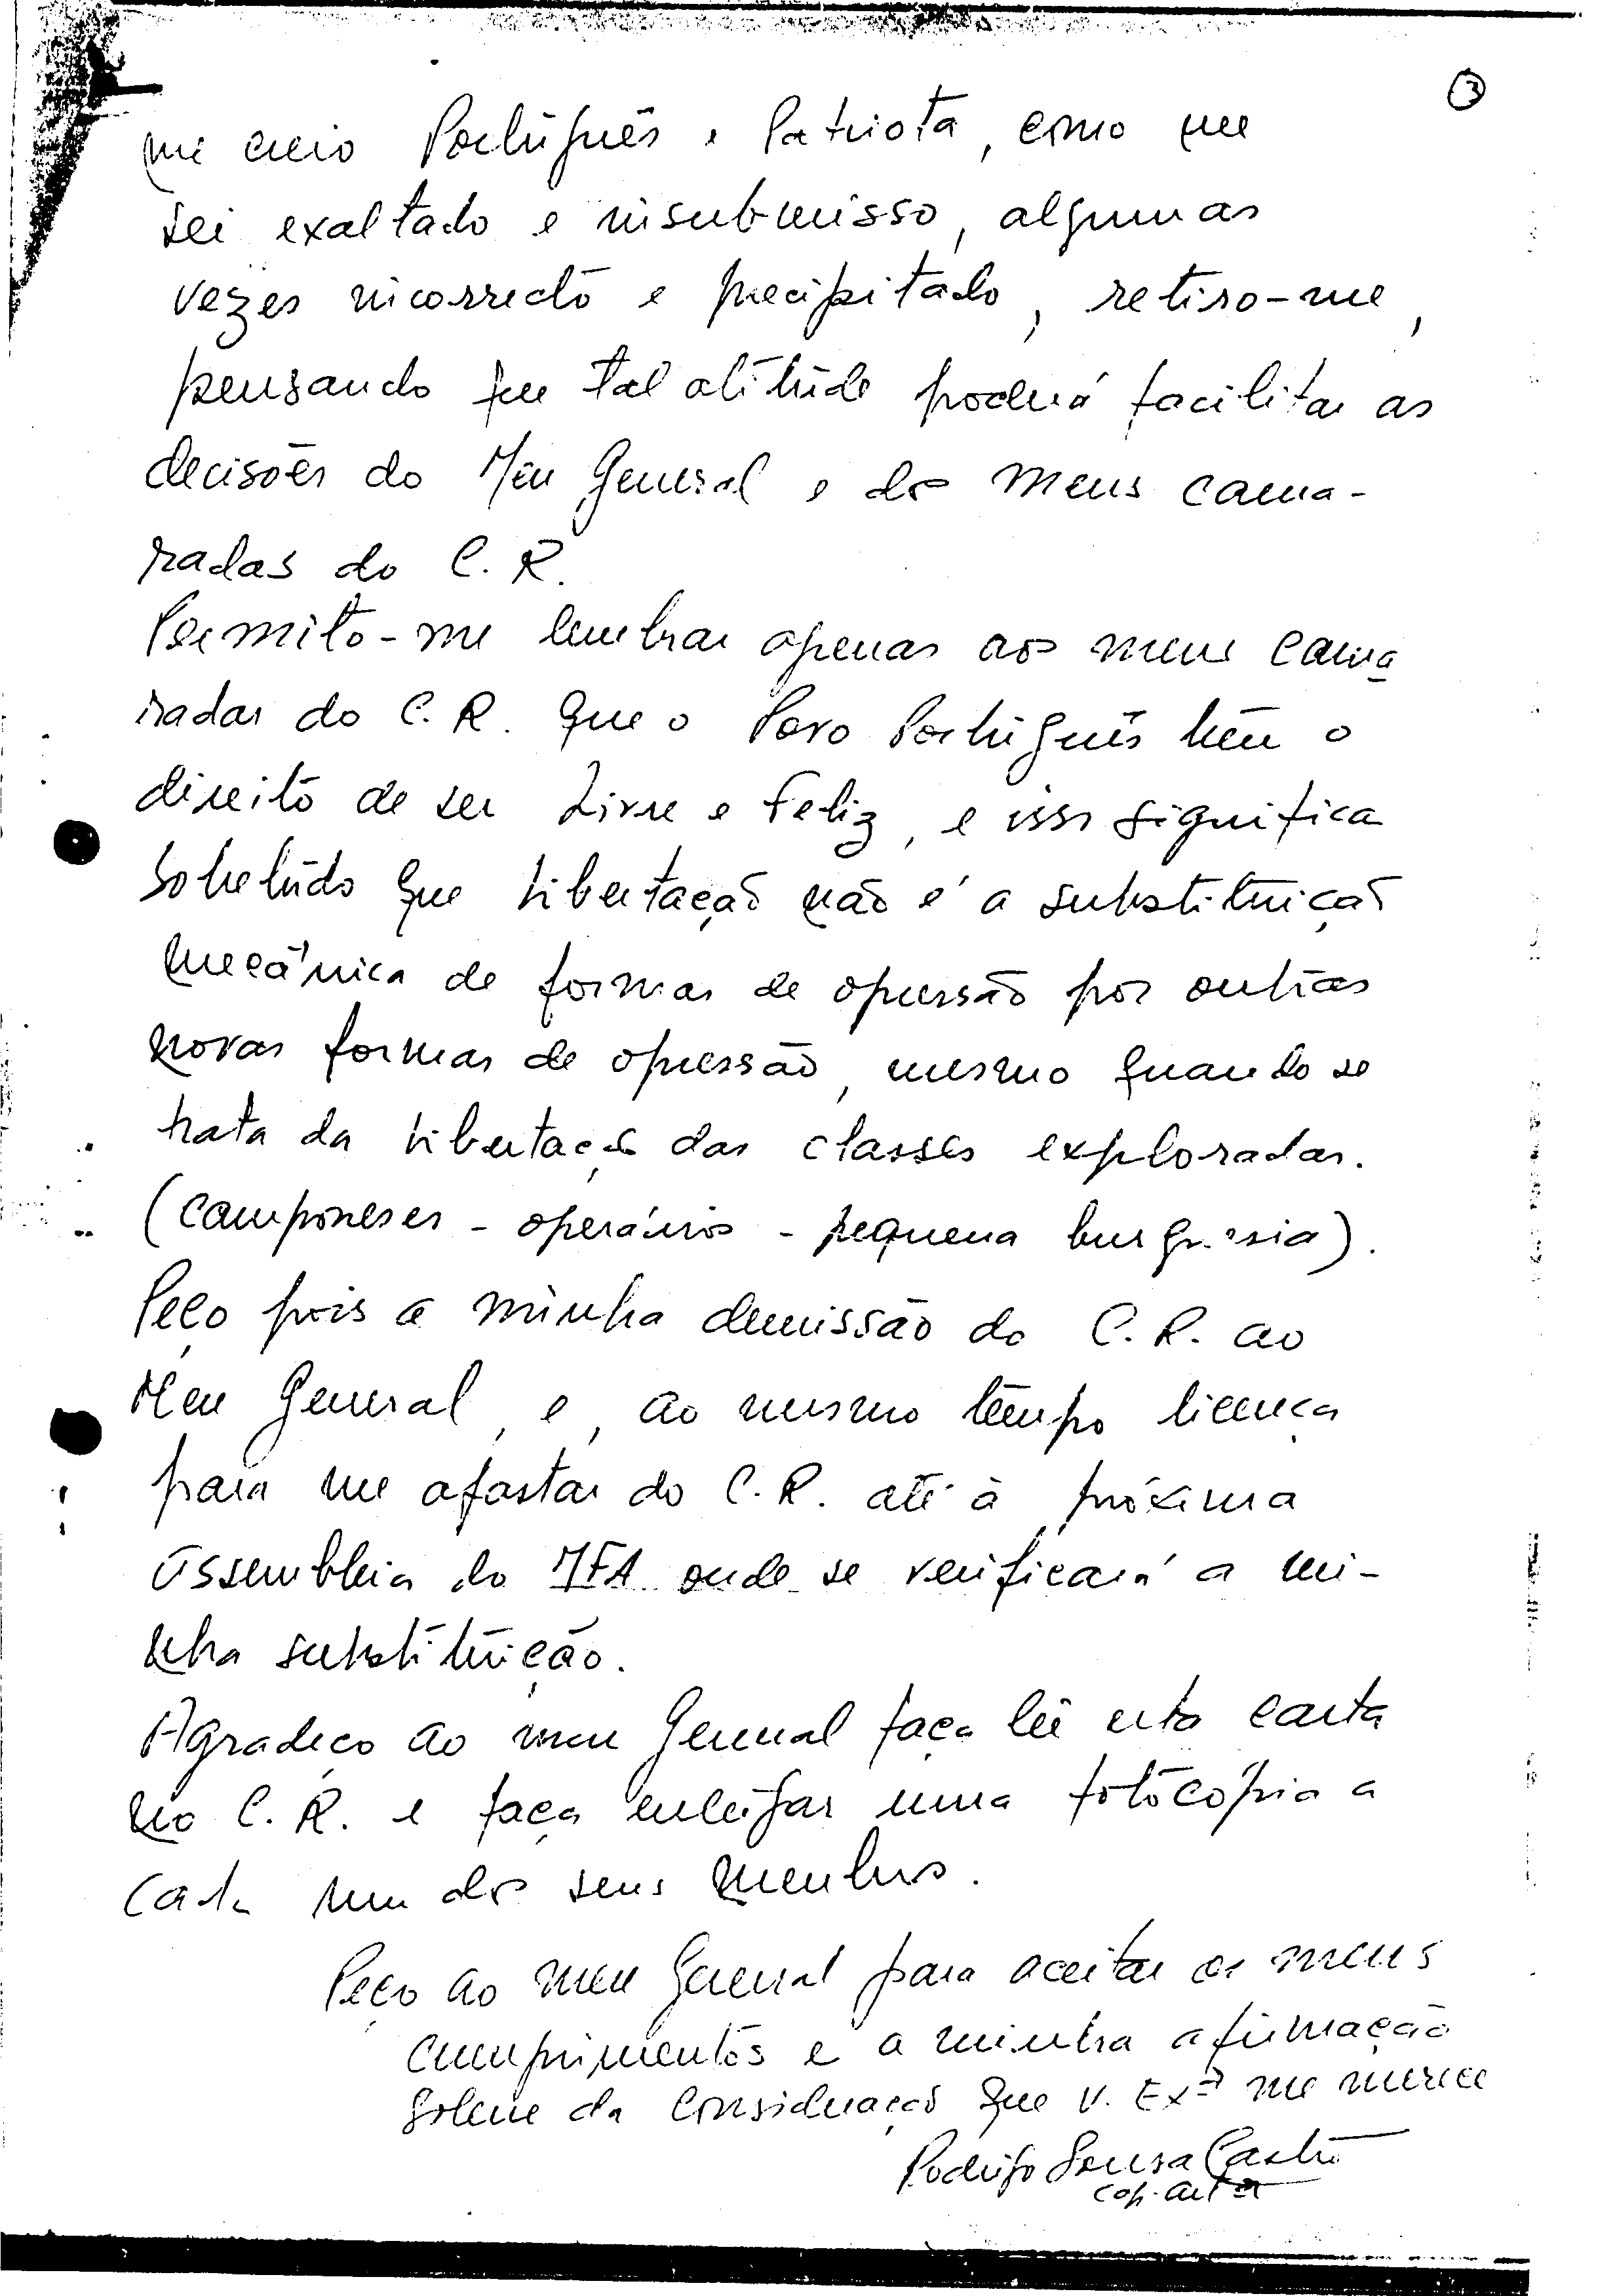 3
me creio Português e Patriota, como me
sei exaltado e insubmisso, algumas
vezes incorrecto e precipitado, retiro-me,
pensando que tal atitude poderá facilitar as
decisões do Meu General e dos meus cama-
radas do C. R.
Permito-me lembrar apenas aos meus cama
radas do C. R. que o Povo Português tem o
direito de ser Livre e Feliz, e isso significa
sobretudo que libertação não é a substituição
mecânica de formas de opressão por outras
novas formas de opressão, mesmo quando se
trata da libertação das classes exploradas.
(Camponeses - operários - pequena burguesia).
Peço pois a minha demissão do C. R. ao
Meu General, e, ao mesmo tempo licença
para me afastar do C. R. até à próxima
Assembleia do MFA onde se verificará a mi-
nha substituição.
Agradeço ao meu General faça ler esta carta
no C. R. e faça entregar uma fotocópia a
cada um dos seus membros.
Peço ao meu General para aceitar os meus
cumprimentos e a minha afirmação
solene da consideração que V. Exª me merece
Rodrigo Sousa Castro
cap. artª